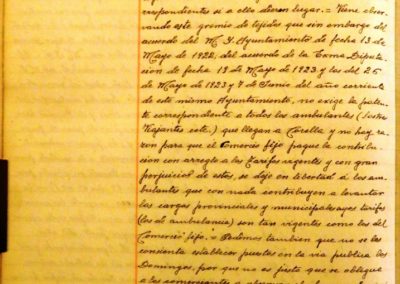 rrespondientes si a ello dieren lugar. = Viene obser-
vando este gremio de tejidos que sin embargo del
acuerdo del M. Y. Ayuntamiento de fecha 13 de
Mayo de 1922, del acuerdo de la Exma. Diputa-
cion de fecha 19 de Mayo de 1923 y los del 25
de Mayo de 1923 y 7 de Junio del año corriente
de este mismo Ayuntamiento, no exige la paten-
te correspondiente a todos los ambulantes (
Viajantes este.) que llegan a Corella y no hay ra-
zon para que el Comercio fijo pague la contribu-
cion con arreglo a las tarifas vigentes y con gran
perjuicial de estos, se deje en libertad a los am-
bulantes que con nada contribuyen a levantar
las cargas provinciales y municipales cuyas tarifas
(los al ambulancia) son tan vigentes como las del
Comercio fijo. = Pedimos tambien que no se les
consienta establecer puestos en la via publica los
Domingos, por que no es justo que se obligue
a los comerciantes a